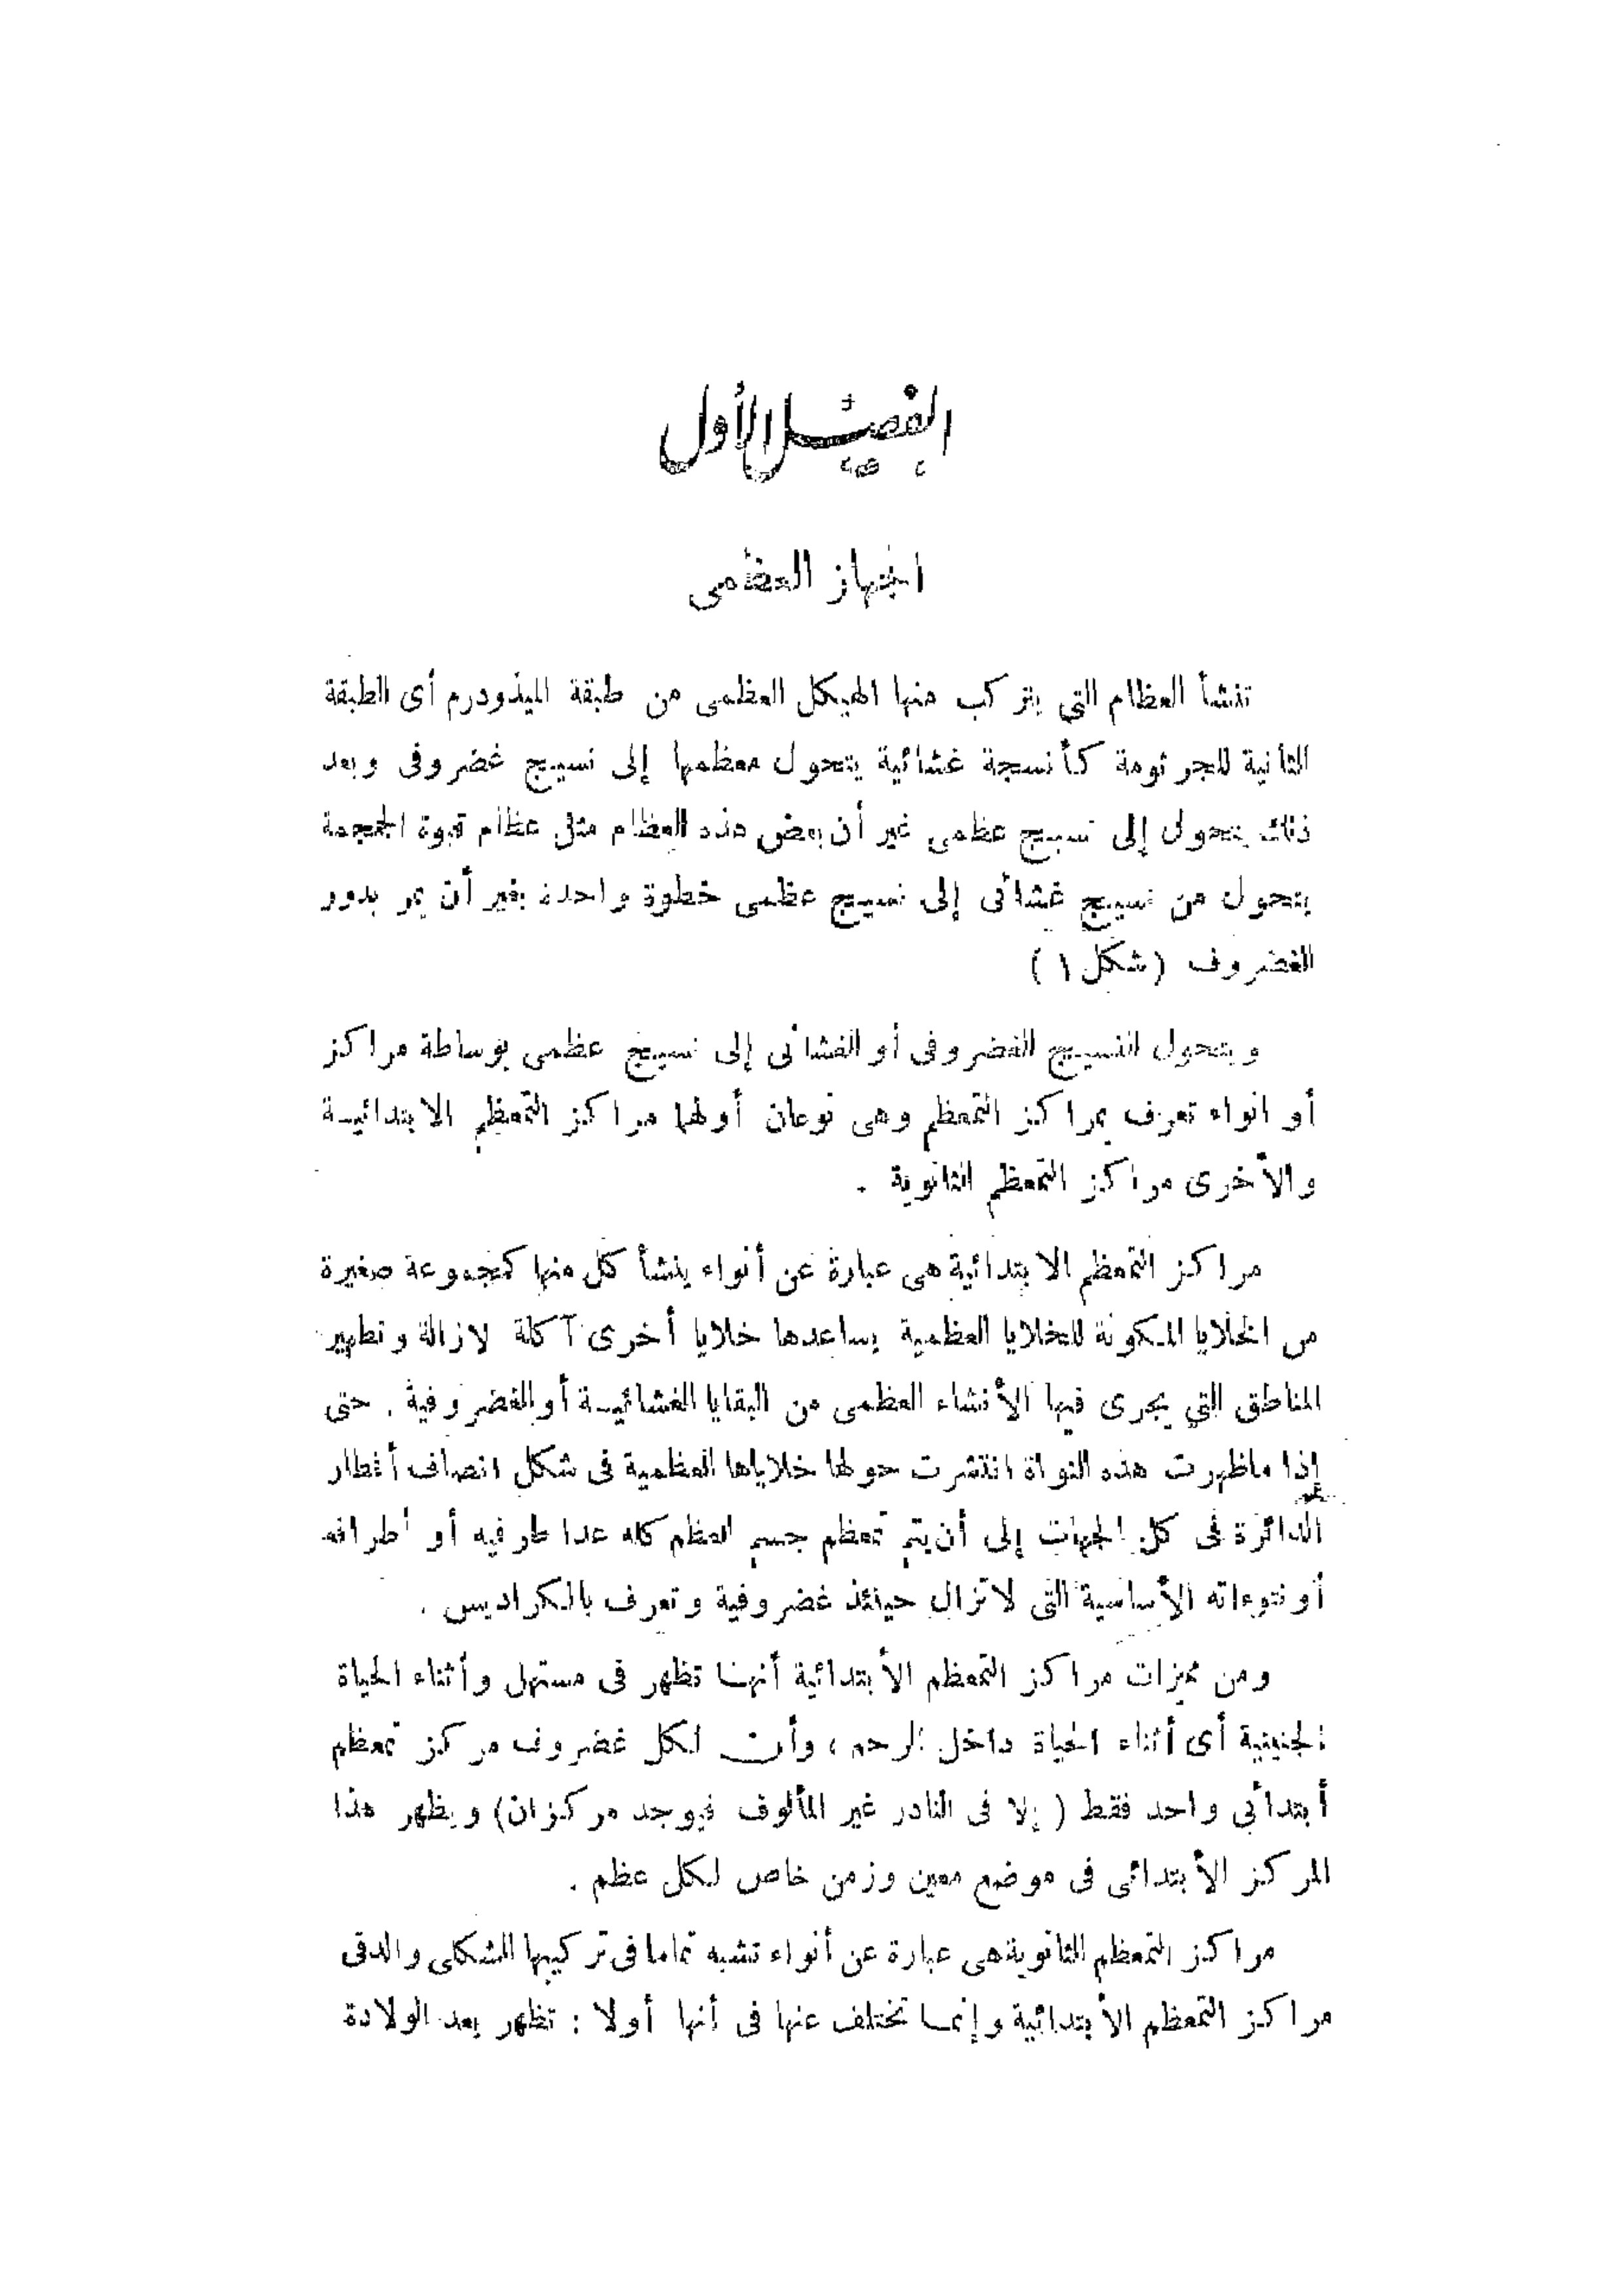 الفصل الأول
الجهاز العظمى
تنشأ العظام التى يتركب منها الهيكل العظمى من طبقة الميذودرم أى الطبقة
الثانية للجرثومة كأنسجة غشائية يتحول معظمها إلى نسيج غضروفى وبعد
ذلك يتحول إلى نسيج عظمى غير أن بعض هذه العظام مثل عظام قبوة الجمجمة
يتحول من نسيج غشائى إلى نسيج عظمى خطوة واحدة بغير أن يمر بدور
الغضروف (شكل ١)
ويتحول النسيج الغضروفى أو الغشائى إلى نسيج عظمى بوساطة مراكز
أو انواء تعرف بمراكز التمعظم وهى نوعان أولها مراكز التمعظم الابتدائية
والأخرى مراكز التمعظم الثانوية .
مراكز التمعظم الابتدائية هى عبارة عن أنواء ينشأ كل منها كمجموعة صغيرة
من الخلايا المكونة للخلايا العظمية يساعدها خلايا أخرى آكلة لازالة وتطهير
المناطق التى يجرى فيها الأنشاء العظمى من البقايا الغشائية أو الغضروفية . حتى
إذا ماظهرت هذه النواة انتشرت حولها خلاياها العظمية فى شكل انصاف أقطار
الدائرة فى كل الجهات إلى أن يتم تمعظم جسم العظم كله عدا طرفيه أو أطرافه
أو نتوءاته الأساسية التى لاتزال حينئذ غضروفية وتعرف بالكراديس .
ومن مميزات مراكز التمعظم الأبتدائية أنها تظهر فى مستهل وأثناء الحياة
الجنينية أى أثناء الحياة داخل الرحم ، وأن لكل غضروف مركز تمعظم
أبتدائى واحد فقط ( إلا فى النادر غير المألوف فيوجد مركزان) ويظهر هذا
المركز الأبتدائى فى موضع معين وزمن خاص لكل عظم .
مراكز التمعظم الثانوية هى عبارة عن أنواء تشبه تماما فى تركيبها الشكلى والدقى
مراكز التمعظم الأبتدائية وإنما تختلف عنها فى أنها أولا : تظهر بعد الولادة